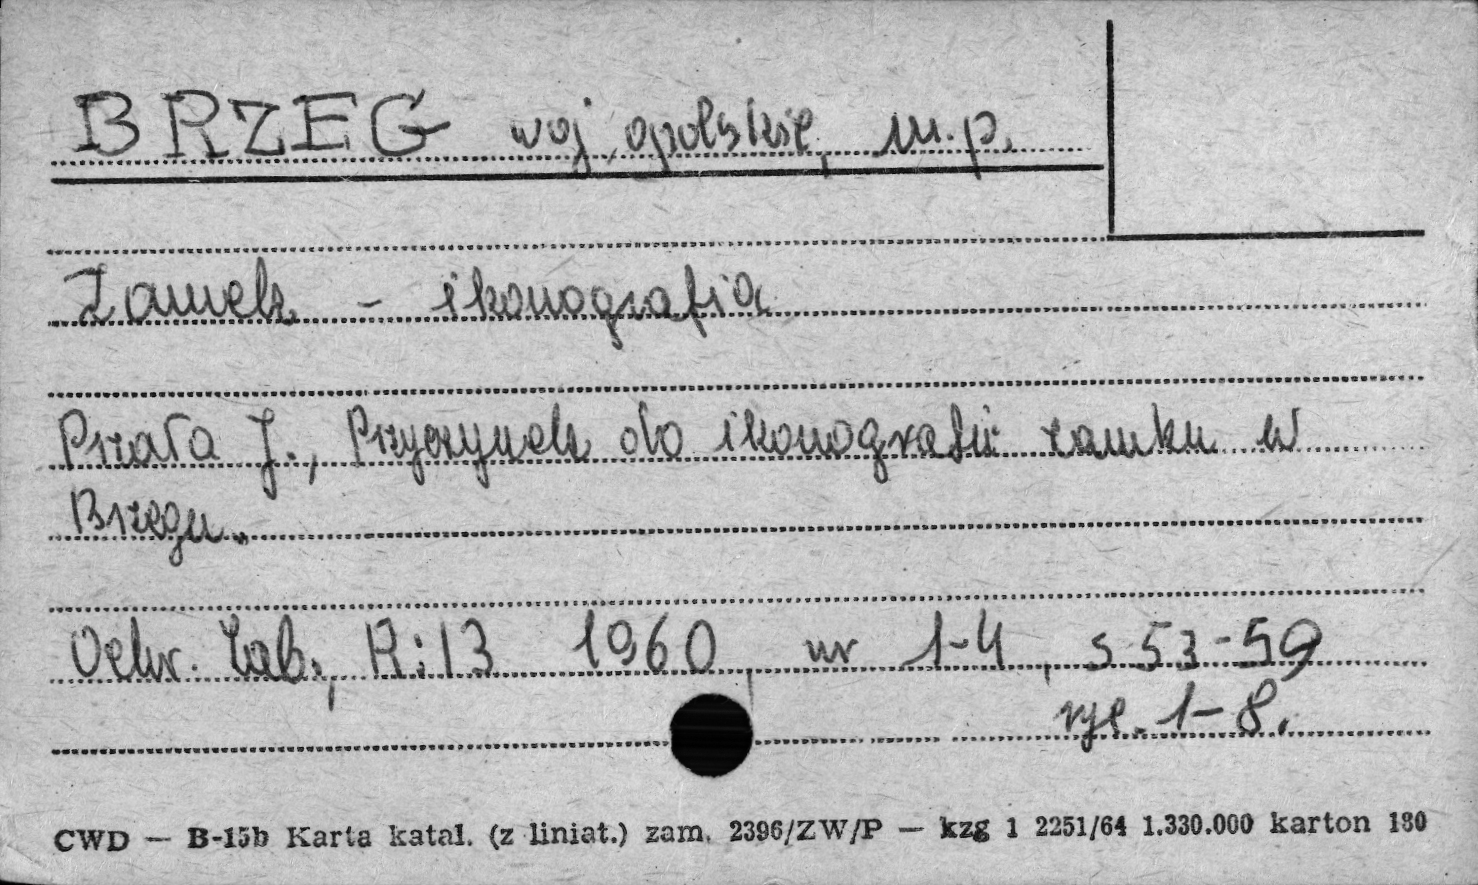 BRZEG woj. opolskie, m.p.
Zamek - ikonografia
Przała J., Przyczynek do ikonografii zamku w
Brzegu.
Ochr. Zab., R:13 1960, nr 1-4, s 53-59
ryc. 1-8.
CWD — B-15b Karta katal. (z liniat.) zam. 2396/ZW/P — kzg 1 2251/64 1.330.000 karton 180